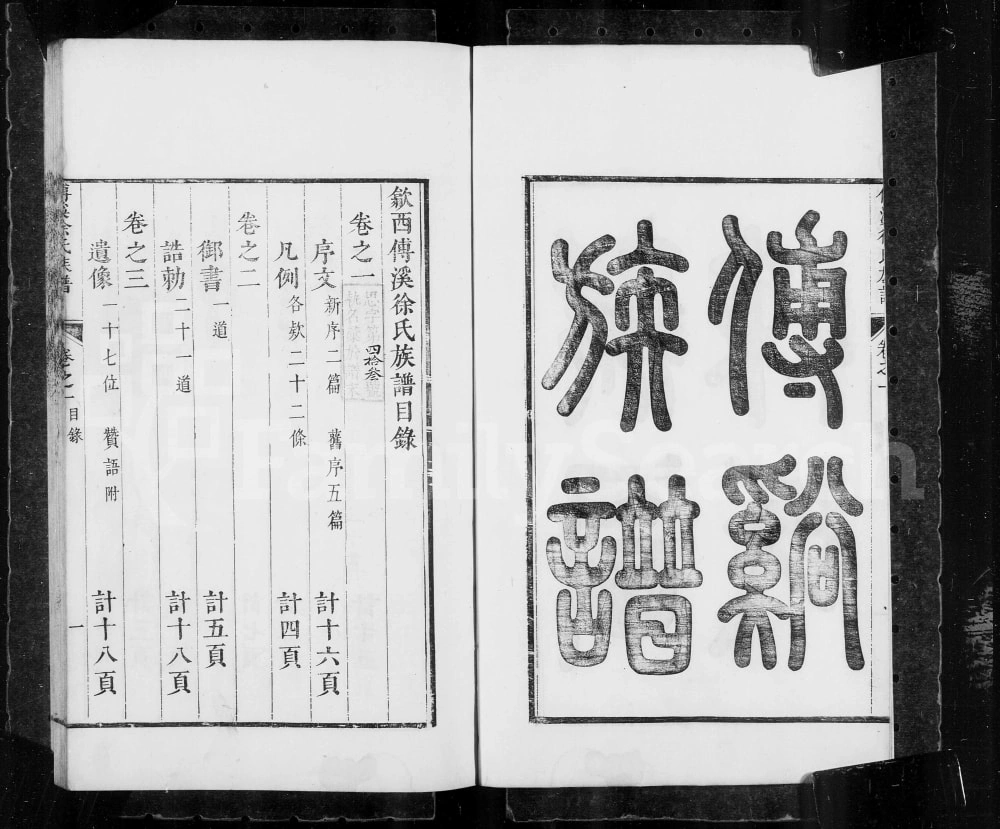 傅谿
族譜
歙西傅溪徐氏族譜目錄
卷之一
四拾叁
序文 新序二篇 舊序五篇 計十六頁
凡例 各欵二十二條 計四頁
卷之二
御書 一道 計五頁
誥勅 二十一道 計十八頁
卷之三
遺像 一十七位 贊語附 計十八頁
卷之一 目錄 一
FamilySearch